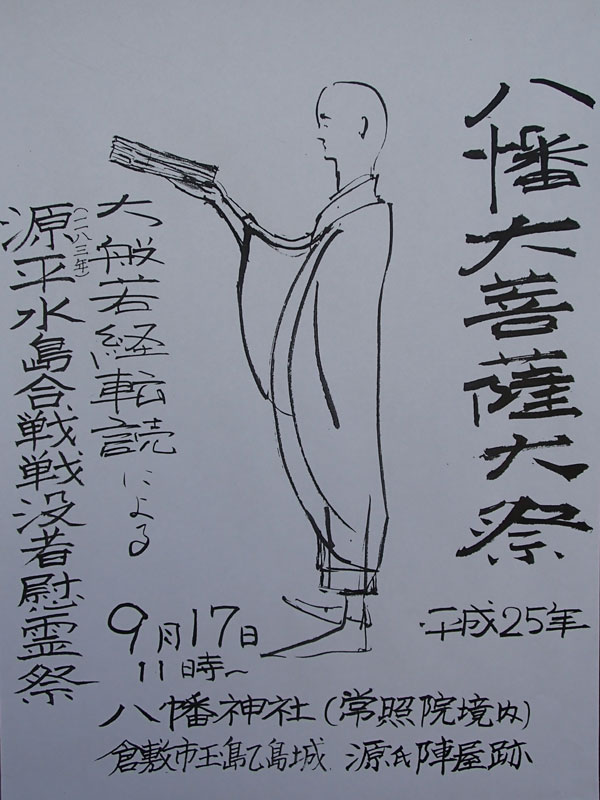 八幡大菩薩大祭
平成25年
大般若経転読による
(一一八三年)
源平水島合戦戦没者慰霊祭
9月17日
11時~
八幡神社(常照院境内)
倉敷市玉島乙島城 源氏陣屋跡